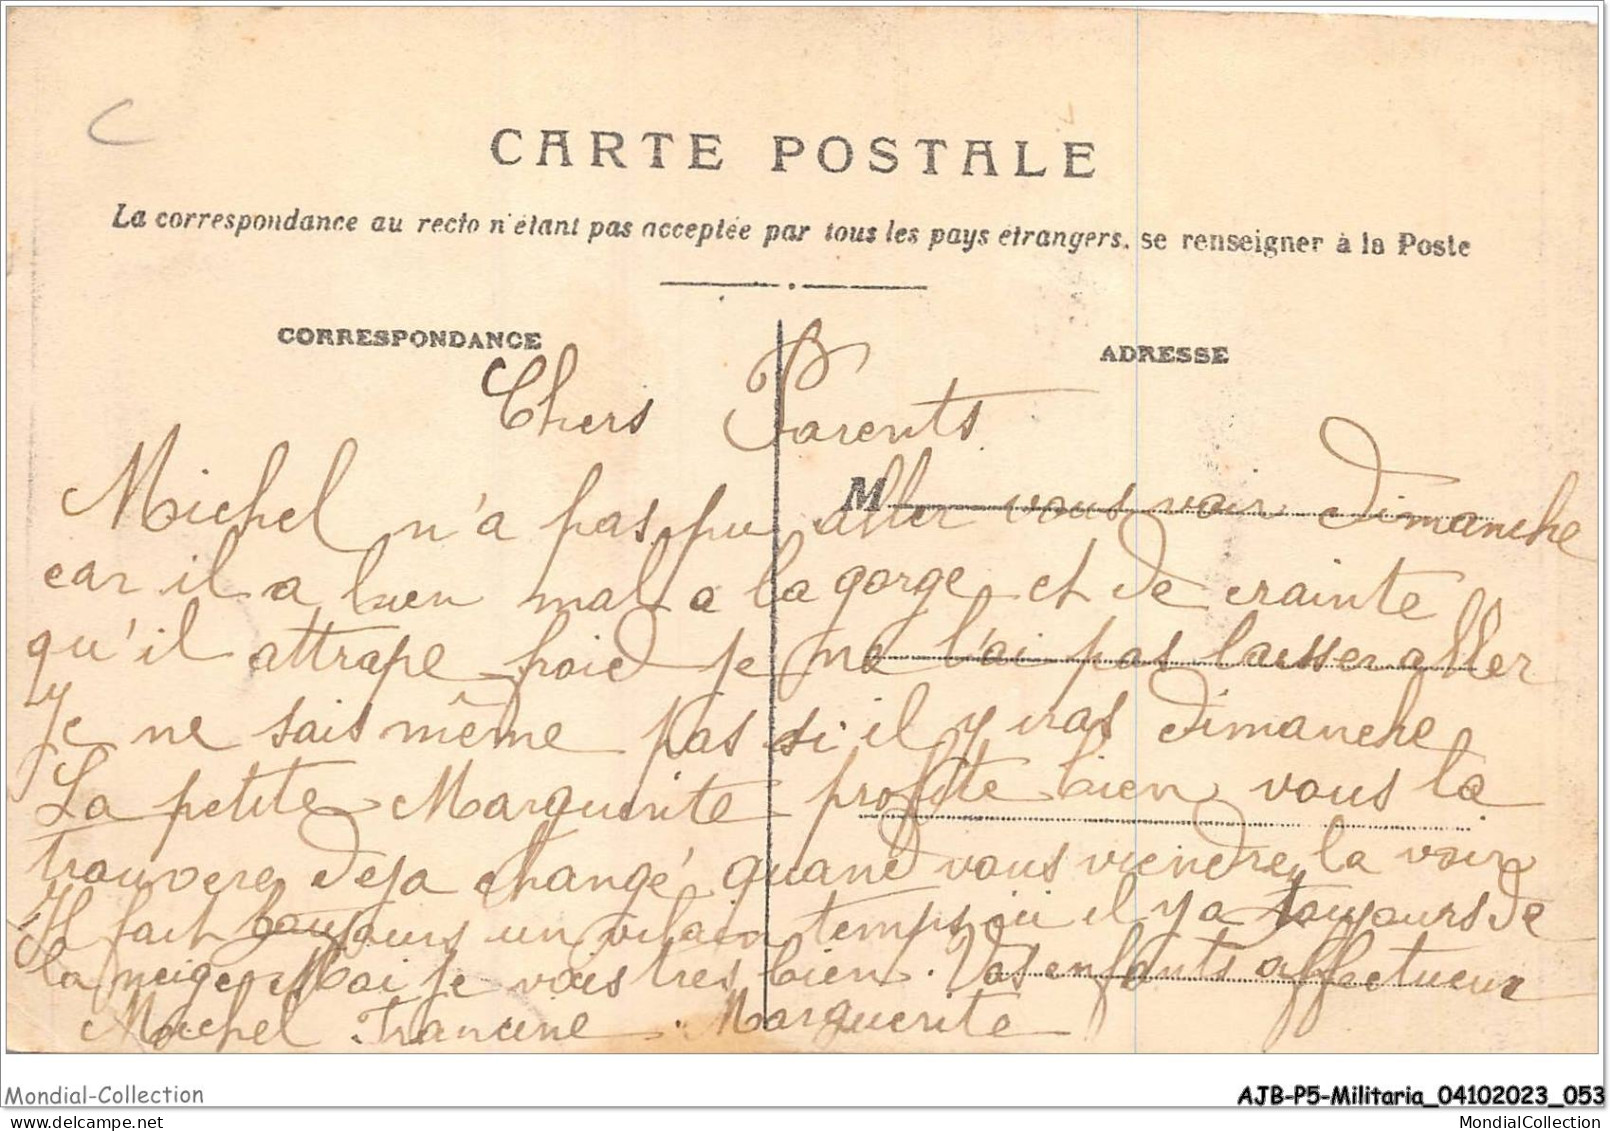 CARTE POSTALE
La correspondance au recto n'étant pas acceptée par tous les pays étrangers, se renseigner à la Poste
CORRESPONDANCE
ADRESSE
M
Chers Parents
Michel n'a pas pu aller vous voir dimanche
car il a bien mal a la gorge et de crainte
qu'il attrape froid je ne l'ai pas laisser aller
Je ne sais même pas si il y iras dimanche
La petite Marguerite profite bien vous la
trouvere deja changé quand vous viendre la voir
Il fait toujours un vilain temps ou il y a toujours de
la neige Moi je vais tres bien. Vos enfants affectueux
Michel Francine Marguerite
Mondial-Collection
AJB-P5-Militaria_04102023_053
MondialCollection